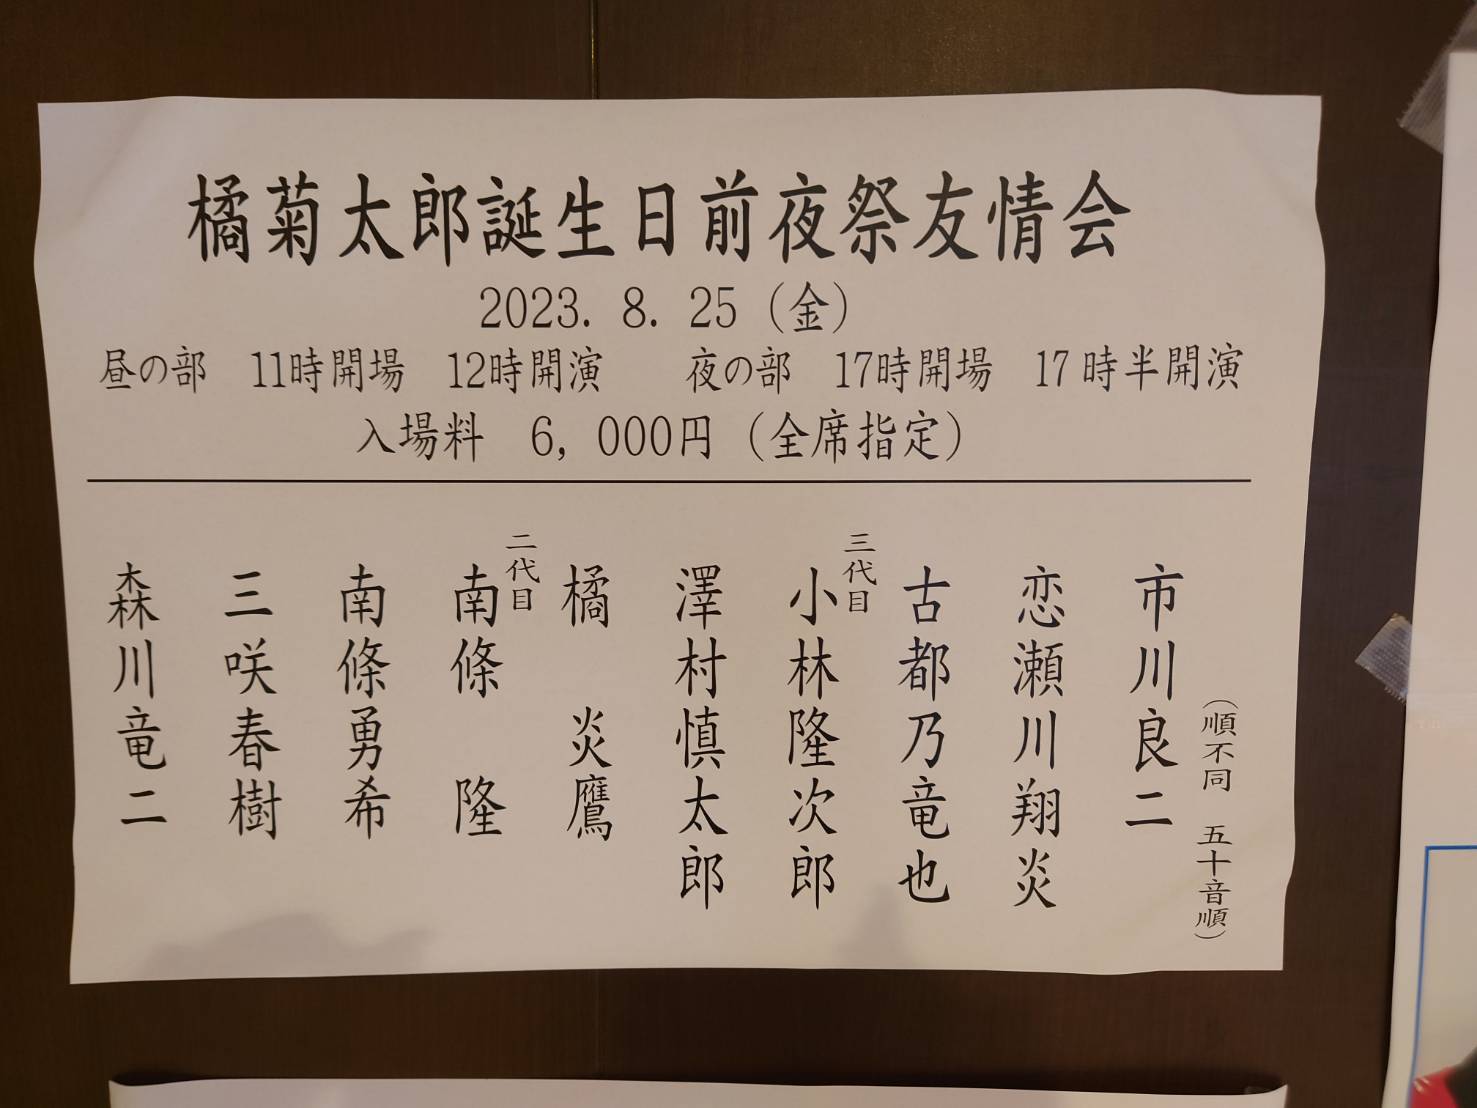 橘菊太郎誕生日前夜祭友情会
2023. 8. 25（金）
昼の部　11時開場　12時開演　　夜の部　17時開場　17時半開演
入場料　6, 000円（全席指定）
（順不同　五十音順）
市川良二
恋瀬川翔炎
古都乃竜也
三代目
小林隆次郎
澤村慎太郎
橘　炎鷹
二代目
南條　隆
南條勇希
三咲春樹
森川竜二